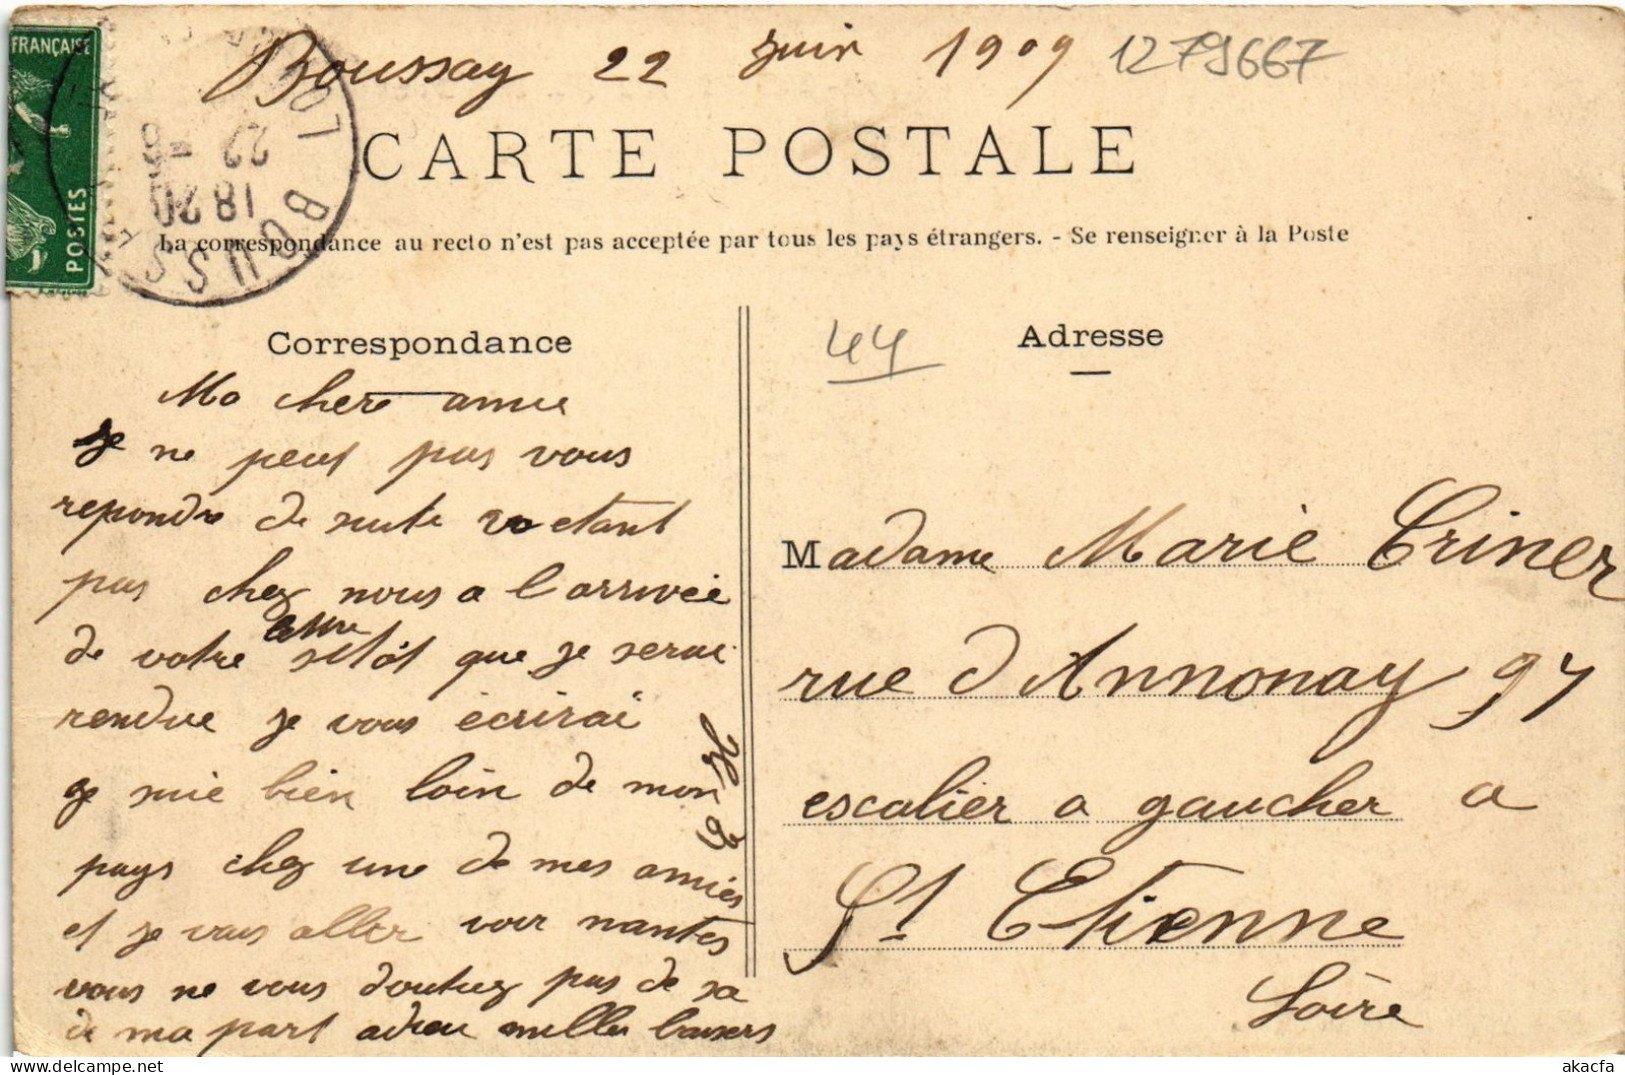 Boussay 22 juin 1909 1279667
FRANÇAISE
POSTES
BOUSS
LOI
22 - 6
18 20
CARTE POSTALE
La correspondance au recto n'est pas acceptée par tous les pays étrangers. - Se renseigner à la Poste
Correspondance
Ma chere amie
Je ne peut pas vous
repondre de suite etant
pas chez nous a l'arrivée
de votre lettre sitôt que je serai
rendue je vous écrirai
je suie bien loin de mon
pays chez une de mes amies
et je vais aller voir nantes
vous ne vous doutiez pas de sa
de ma part adieu milles baisers
44
Adresse
Madame Marie Criner
rue d'Annonay 97
escalier a gaucher a
St Etienne
Loire
akacfa